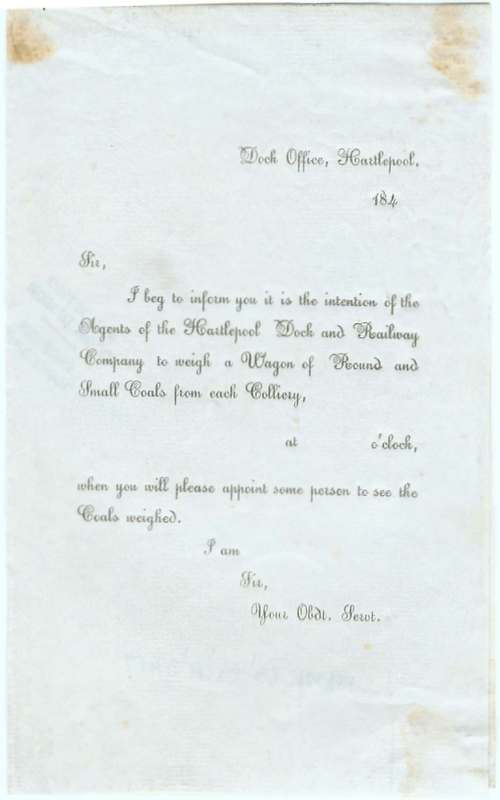 Dock Office, Hartlepool.
184
Sir,
I beg to inform you it is the intention of the
Agents of the Hartlepool Dock and Railway
Company to weigh a Wagon of Round and
Small Coals from each Colliery,
at o'clock,
when you will please appoint some person to see the
Coals weighed.
I am
Sir,
Your Obdt. Servt.